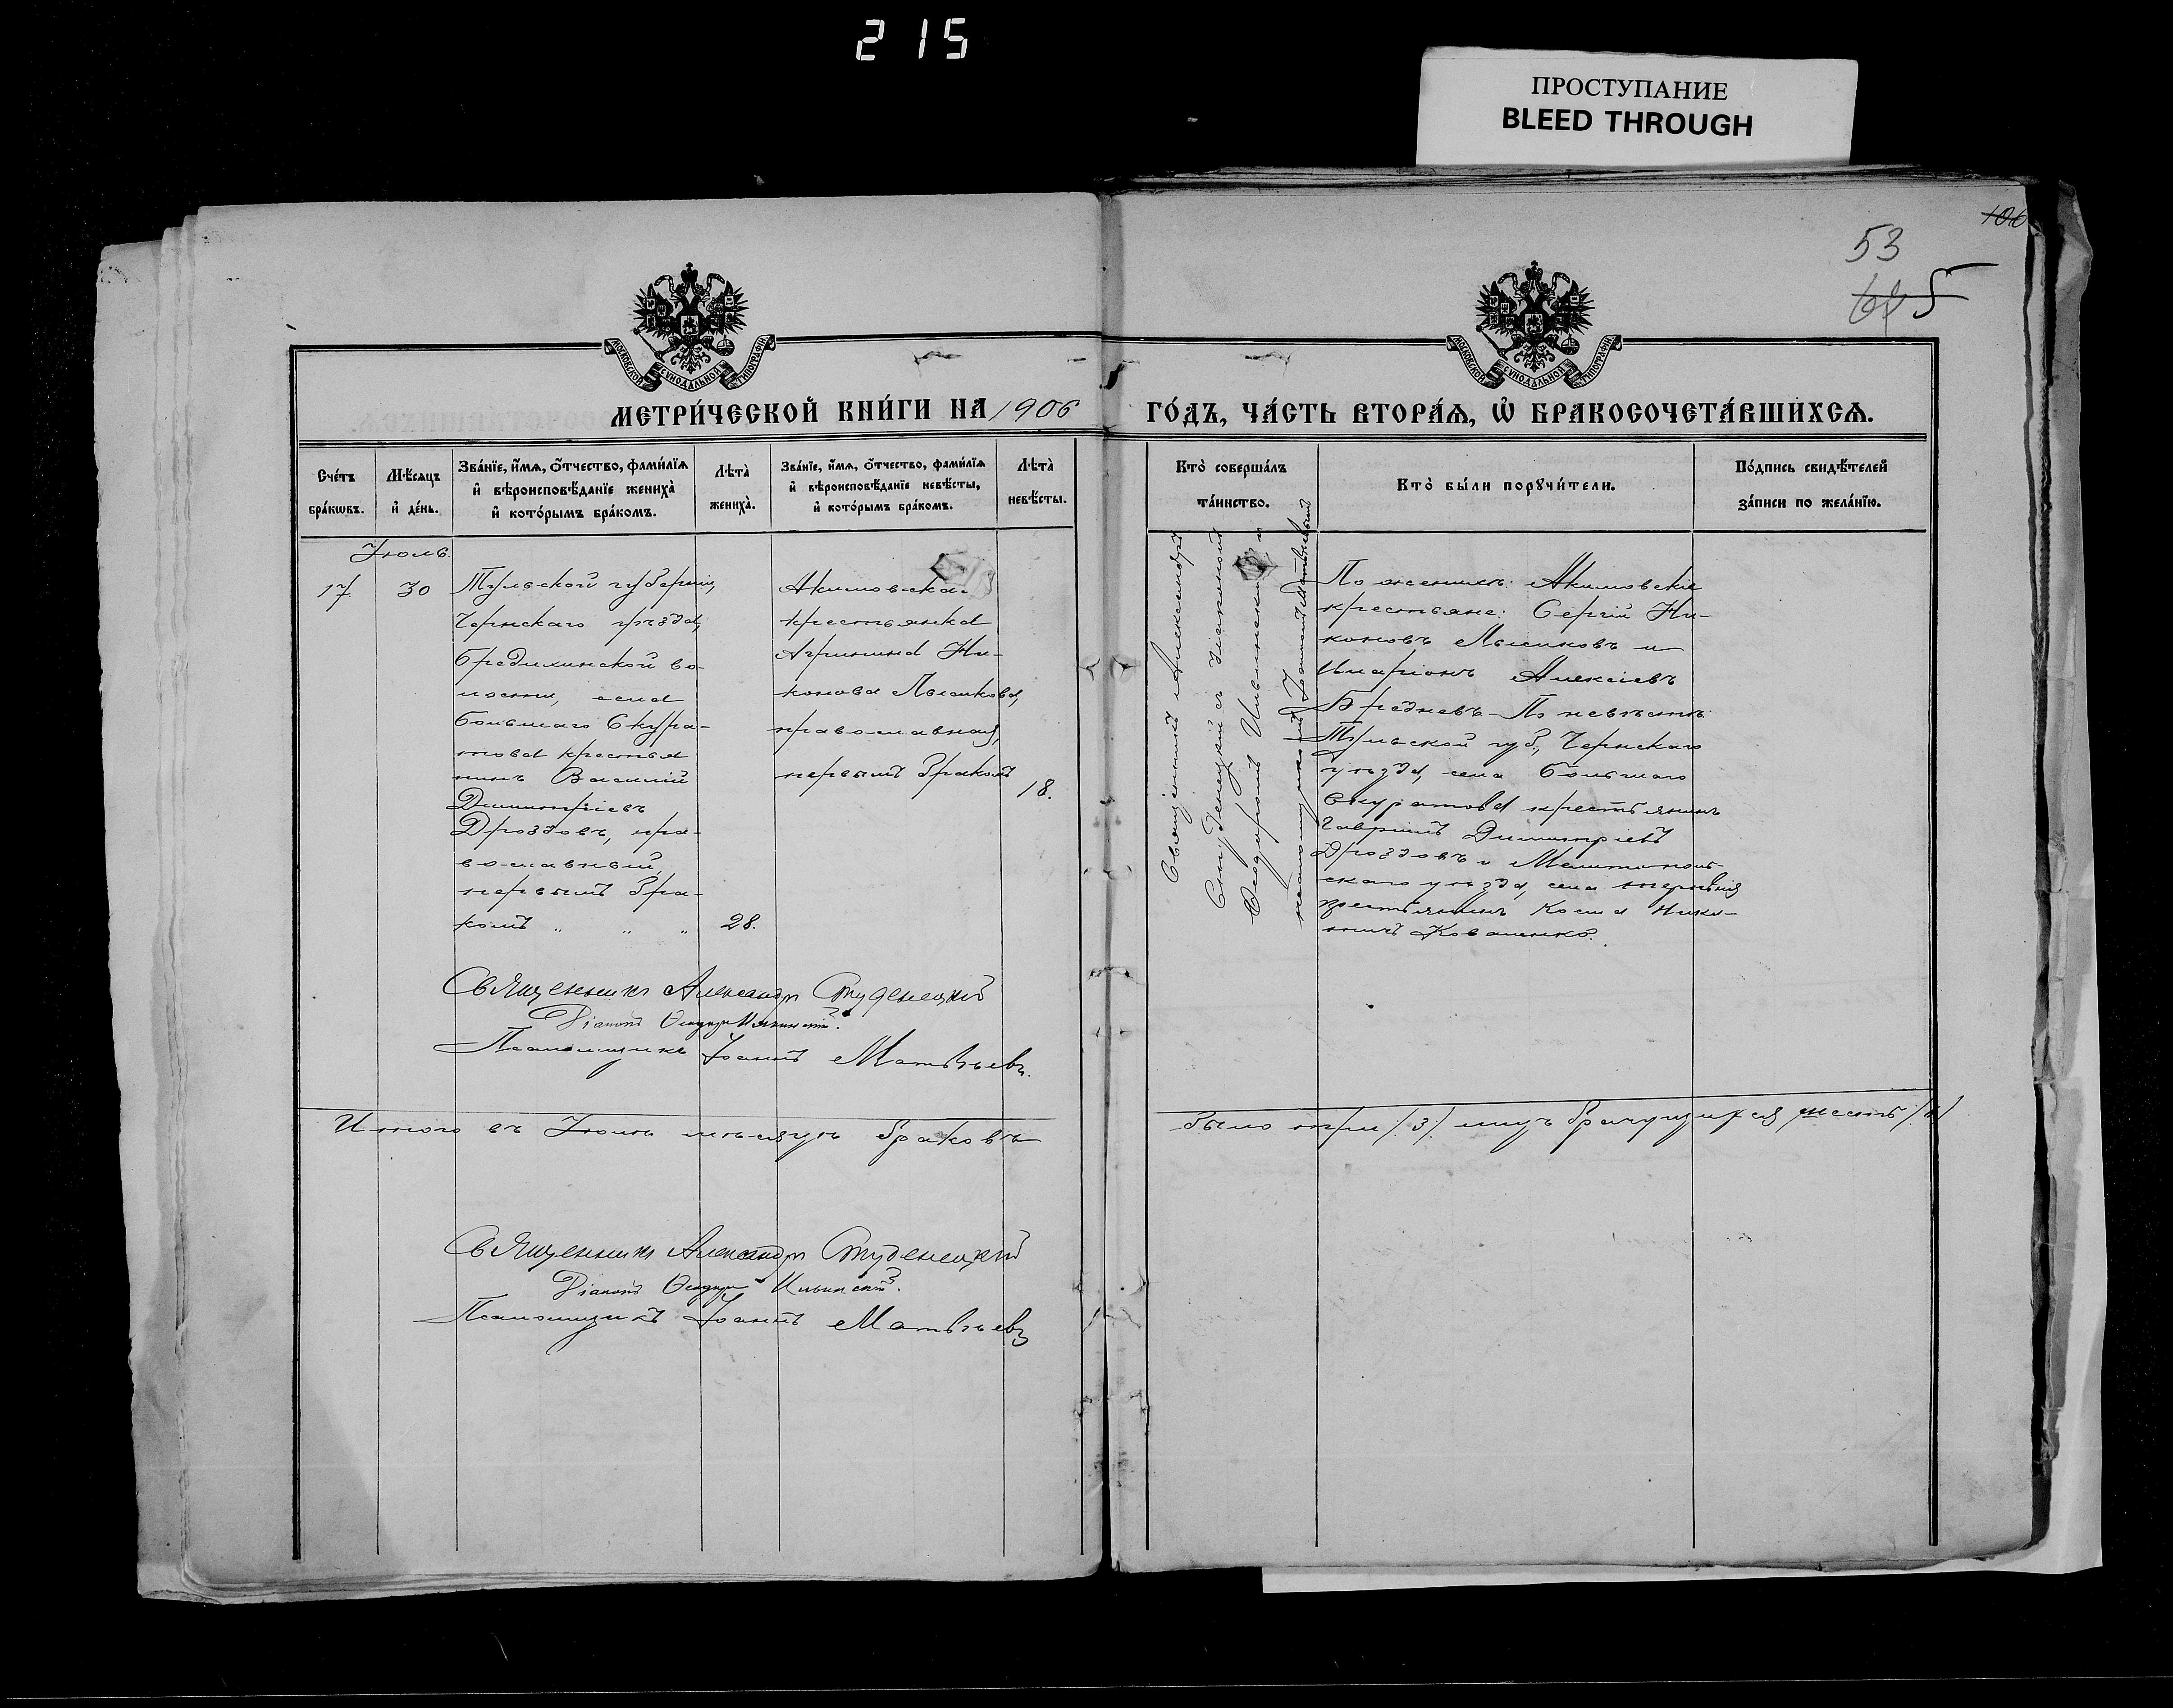 215
ПРОСТУПАНИЕ
BLEED THROUGH
106
53
64 5
МОСКОВСКОЙ СѴНОДАЛЬНОЙ ТИПОГРАФІИ
МОСКОВСКОЙ СѴНОДАЛЬНОЙ ТИПОГРАФІИ
МЕТРИ́ЧЕСКОЙ КНИ́ГИ НА 1906 ГО́ДЪ, ЧА́СТЬ ВТОРА́Я, Ѡ҆ БРАКОСОЧЕТА́ВШИХСЯ.
Сче́тъ
бра́кѡвъ.
Мѣ́сяцъ
и҆ де́нь.
Зва́нїе, и҆́мѧ, ѻ҆́тчество, фами́лїѧ
и҆ вѣроисповѣ́данїе жениха̀
и҆ кото́рымъ бра́комъ.
Лѣта̀
жениха̀.
Зва́нїе, и҆́мѧ, ѻ҆́тчество, фами́лїѧ
и҆ вѣроисповѣ́данїе невѣ́сты,
и҆ кото́рымъ бра́комъ.
Лѣта̀
невѣ́сты.
Кто̀ соверша́лъ
та́инство.
Кто̀ бы́ли порꙋчи́тели.
По́дпись свидѣ́телей
за́писи по жела́нїю.
Іюль.
17
30
Тульской губерніи,
Чернскаго уѣзда,
Бредихинской во-
лости, села
Большаго Скура-
това крестья
нинъ Василій
Димитріевъ
Дроздовъ, пра-
вославный,
первымъ бра-
комъ " " "
28.
Акимовская
крестьянка
Агрипина Ни-
конова Лысикова,
православная,
первымъ бракомъ
18.
Священникъ Александръ
Студенецкій съ діакономъ
Ѳеодоромъ Ильинскимъ и
псаломщикомъ Іоанномъ Матвѣевымъ
По женихѣ: Акимовскіе
крестьяне: Сергій Ни-
коновъ Лысиковъ и
Иларіонъ Алексіевъ
Бредневъ. По невѣстѣ:
Тульской губ., Чернскаго
уѣзда, села Большаго
Скуратова крестьянинъ
Гавріилъ Димитріевъ
Дроздовъ и Мелитополь-
скаго уѣзда, села
крестьянинъ Косма Ники-
тичъ Коваленко.
Священникъ Александръ Студенецкій
Діаконъ Ѳеодоръ Ильинскій.
Псаломщикъ Іоаннъ Матвѣевъ.
Итого въ Іюлѣ мѣсяцѣ браковъ было три /3/ лицъ брачущихся шесть /6/
Священникъ Александръ Студенецкій
Діаконъ Ѳеодоръ Ильинскій.
Псаломщикъ Іоаннъ Матвѣевъ